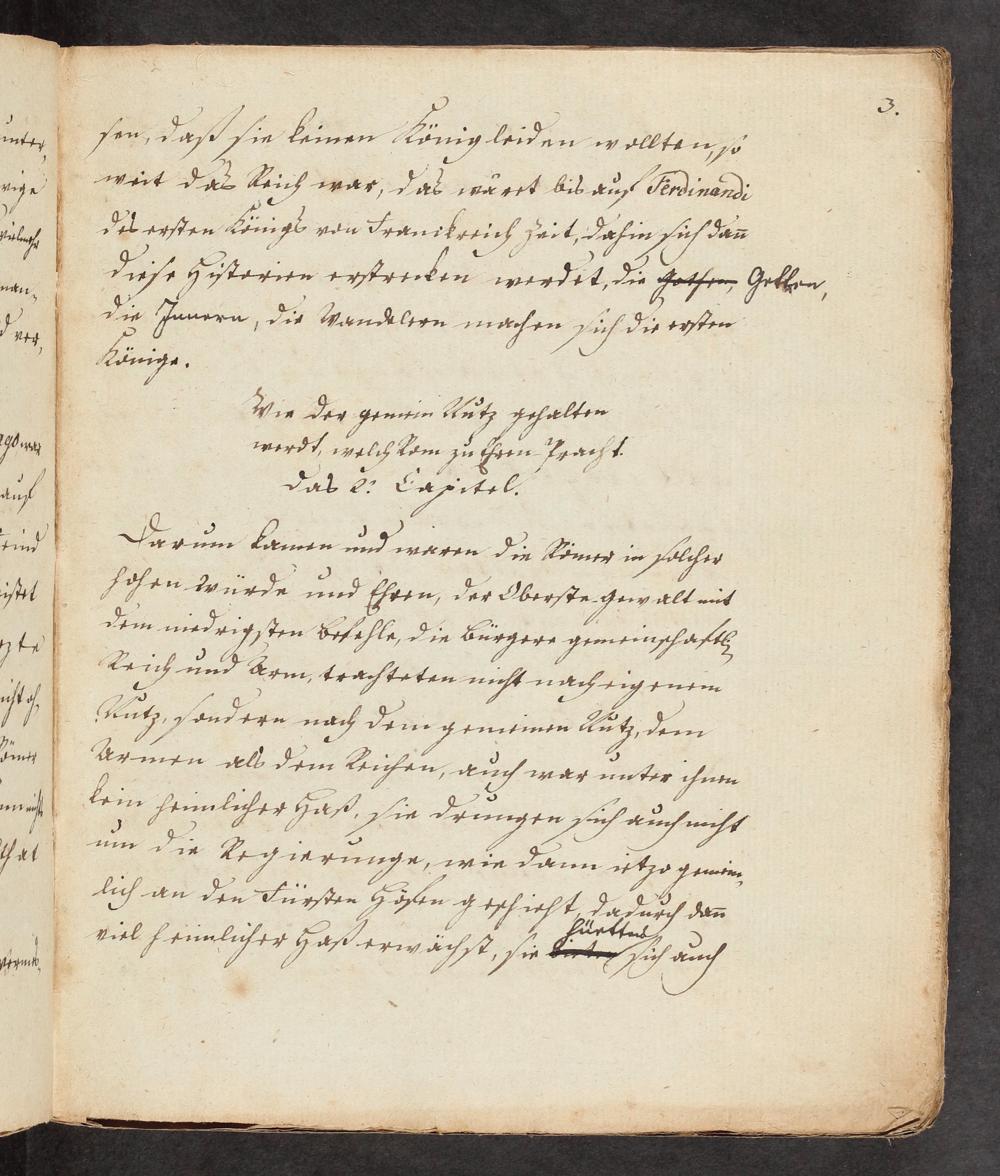 3.
sen, daß sie keinen König leiden wollten, so
weit das Reich war, das wäret bis auf Ferdinandi
des ersten Königs von Franckreich Zeit, dahin sich dann
diese Historien erstrecken werdet, die Gothen,
die, die Wandalern machen sich die ersten
Könige.
Wie der gemein Nutz gehalten
werdt, welch Rom zu Ehren Pracht.
Das 2. Capitel.
Darum kamen und waren die Römer in solcher
hohen Würde und Ehren, der Oberste Gewalt mit
dem niedrigsten Befehle, die Bürgere gemeinschaftl.
Reich und Arm, trachteten nicht nach eigenem
Nutz, sondern nach dem gemeinen Nutz, dem
Armen als dem Reichen, auch war unter ihnen
kein heimlicher Haß, sie drungen sich auch nicht
um die Regierunge, wie dann ietzo gemein-
lich an den Fürsten Höfen geschieht, dadurch dann
viel heimlicher Haß erwächst, sie sich auch